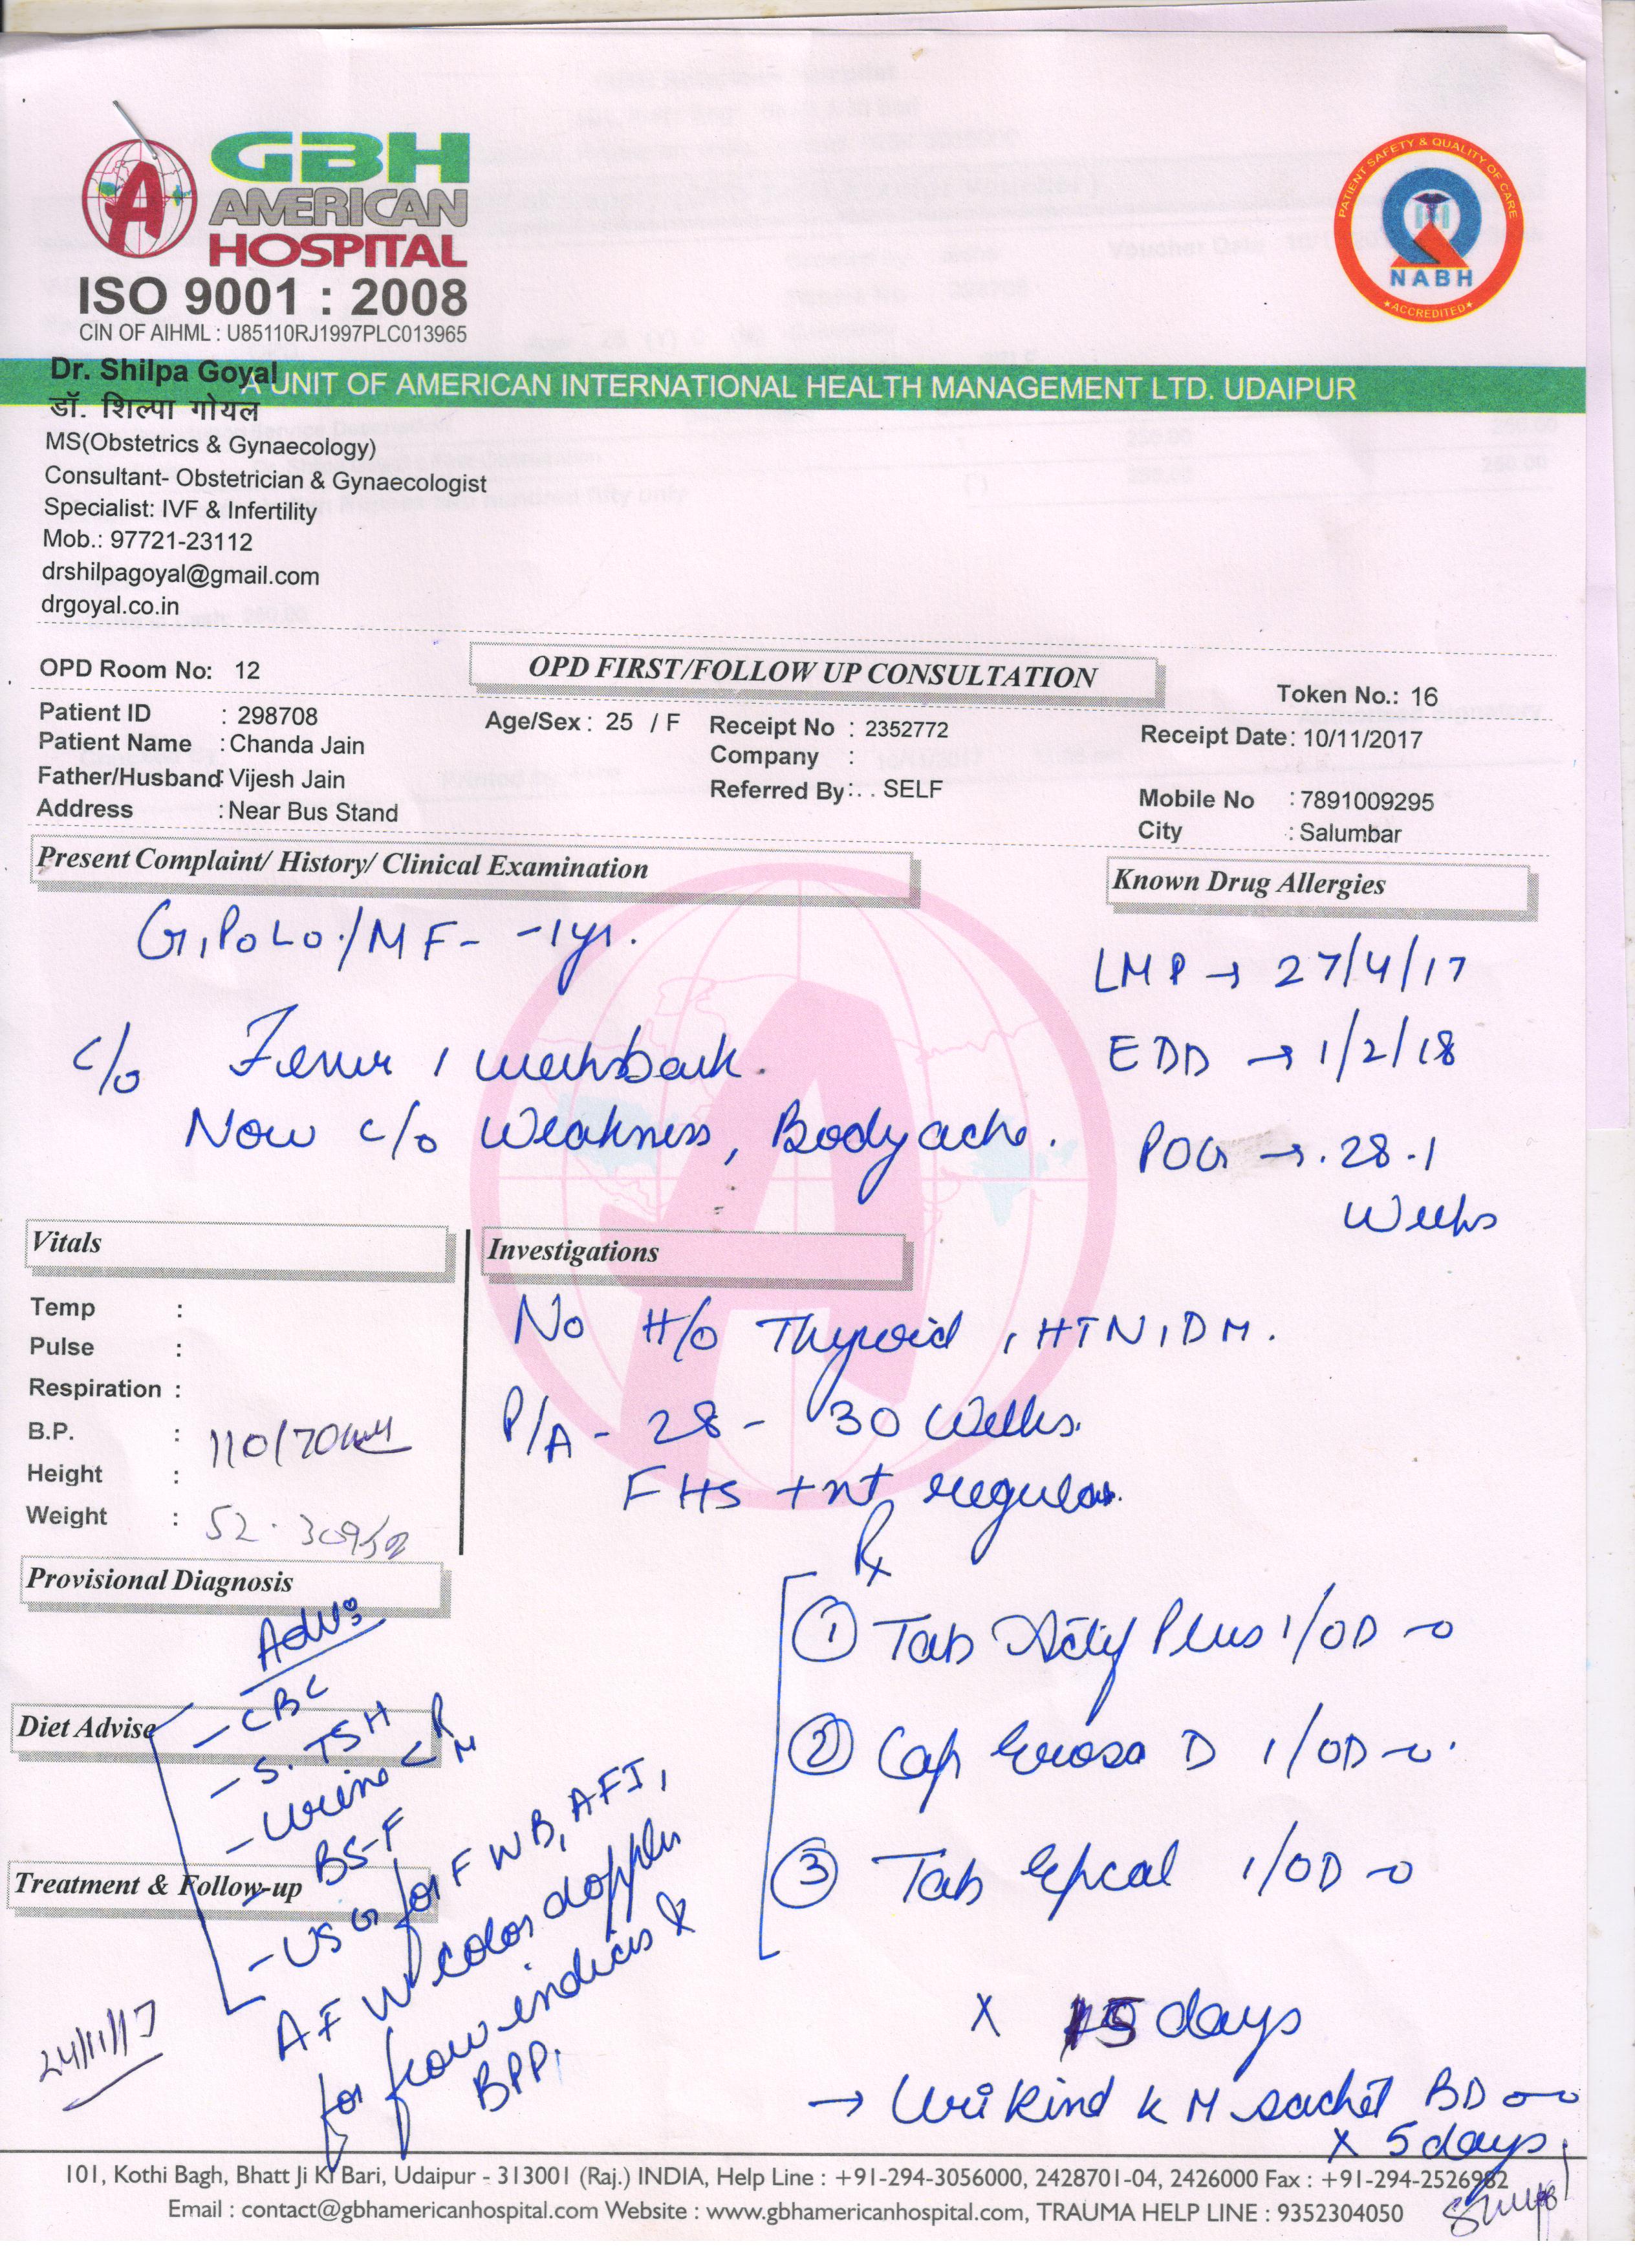 GBH
AMERICAN
HOSPITAL
ISO 9001 : 2008
CIN OF AIHML : U85110RJ1997PLC013965
PATIENT SAFETY & QUALITY OF CARE
NABH
★ACCREDITED★
A UNIT OF AMERICAN INTERNATIONAL HEALTH MANAGEMENT LTD. UDAIPUR
Dr. Shilpa Goyal
डॉ. शिल्पा गोयल
MS(Obstetrics & Gynaecology)
Consultant- Obstetrician & Gynaecologist
Specialist: IVF & Infertility
Mob.: 97721-23112
drshilpagoyal@gmail.com
drgoyal.co.in
OPD Room No: 12
OPD FIRST/FOLLOW UP CONSULTATION
Token No.: 16
Patient ID : 298708
Age/Sex : 25 / F
Receipt No : 2352772
Receipt Date: 10/11/2017
Patient Name : Chanda Jain
Company :
Father/Husband: Vijesh Jain
Referred By:.. SELF
Mobile No : 7891009295
Address : Near Bus Stand
City : Salumbar
Present Complaint/ History/ Clinical Examination
Known Drug Allergies
G1P0L0/MF- -1yr.
LMP → 27/4/17
EDD → 1/2/18
POG → 28.1
Weeks
c/o Fever 1 weeks back.
Now c/o Weakness, Bodyache.
Vitals
Temp :
Pulse :
Respiration :
B.P. : 110/70
Height :
Weight : 52.30
Investigations
No H/o Thyroid, HTN, DM.
P/A - 28 - 30 Weeks.
FHS +nt regular.
Rx
Provisional Diagnosis
Adv:
- CBC
- S. TSH
- Urine R
M
- BS-F
- USG for FWB, AFI,
AFW color doppler
for flow indices &
BPP.
Diet Advise
Treatment & Follow-up
24/11/17
① Tab Plus 1/OD
② Cap D 1/OD
③ Tab 1/OD
x 15 days
→ Urikind KM sachet BD
x 5 days
101, Kothi Bagh, Bhatt Ji Ki Bari, Udaipur - 313001 (Raj.) INDIA, Help Line : +91-294-3056000, 2428701-04, 2426000 Fax : +91-294-2526982
Email : contact@gbhamericanhospital.com Website : www.gbhamericanhospital.com, TRAUMA HELP LINE : 9352304050